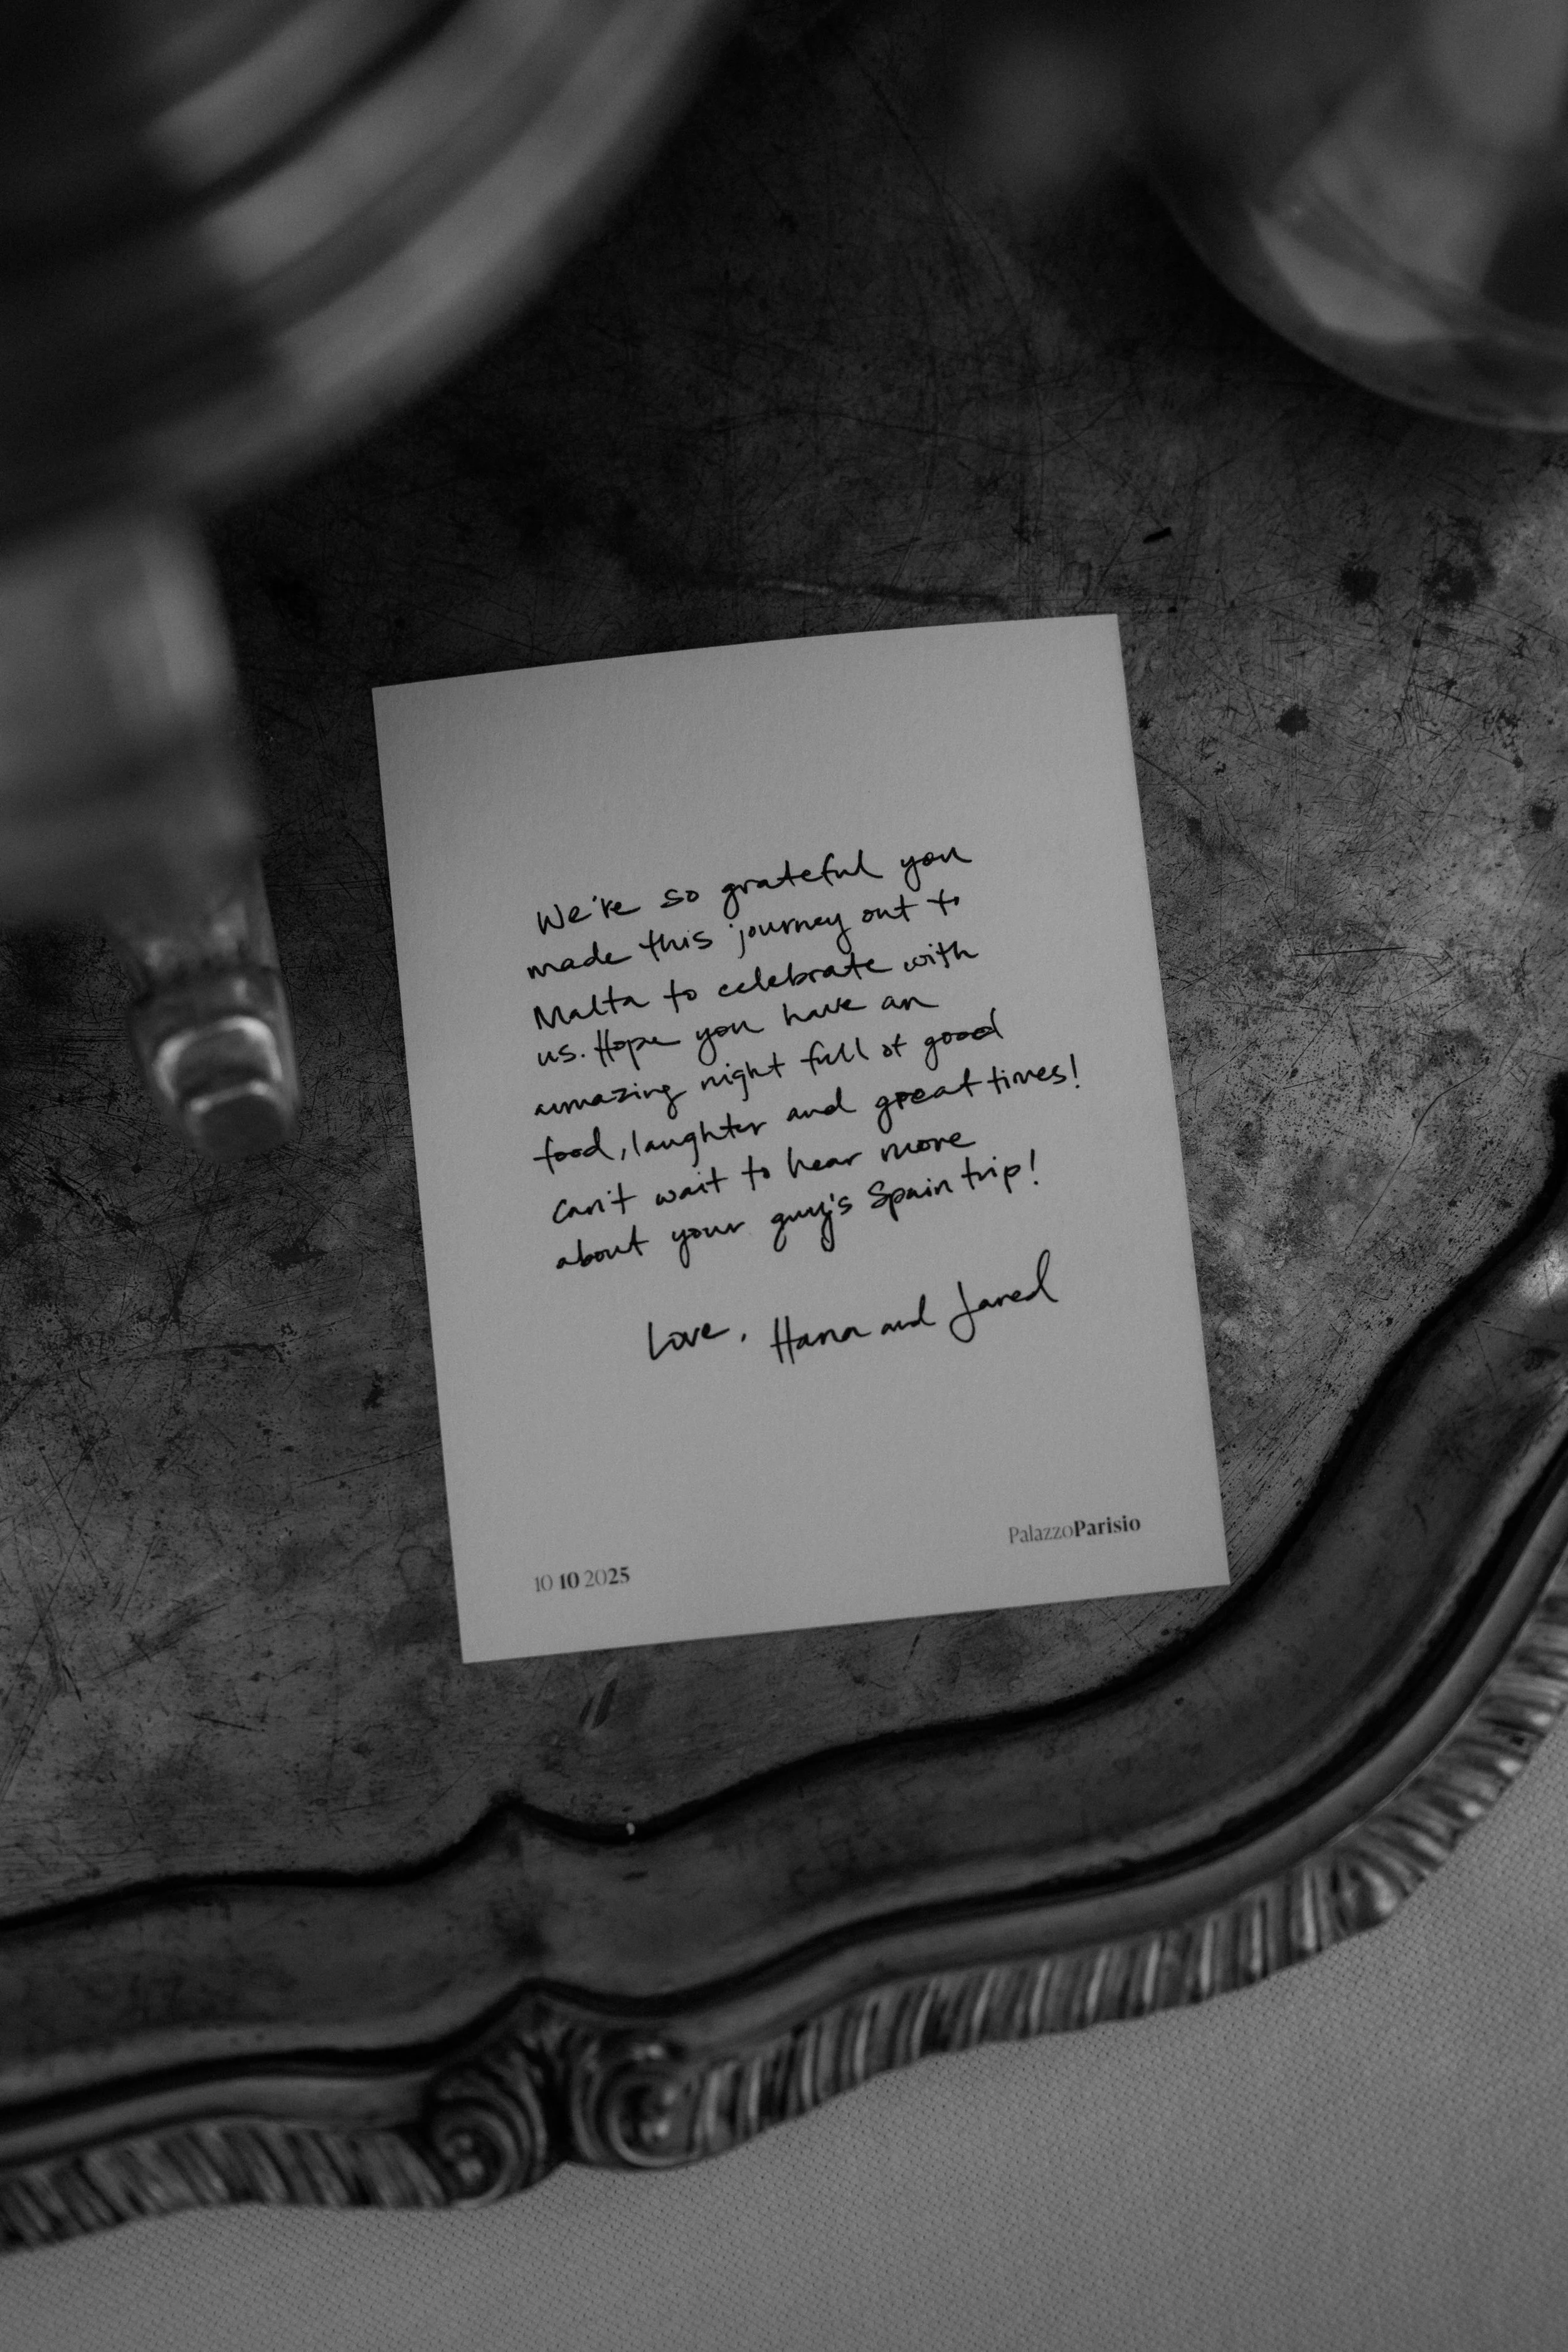 We're so grateful you
made this journey out to
Malta to celebrate with
us. Hope you have an
amazing night full of good
food, laughter and great times!
Can't wait to hear more
about your guy's Spain trip!
Love, Hana and Jared
10 10 2025
PalazzoParisio